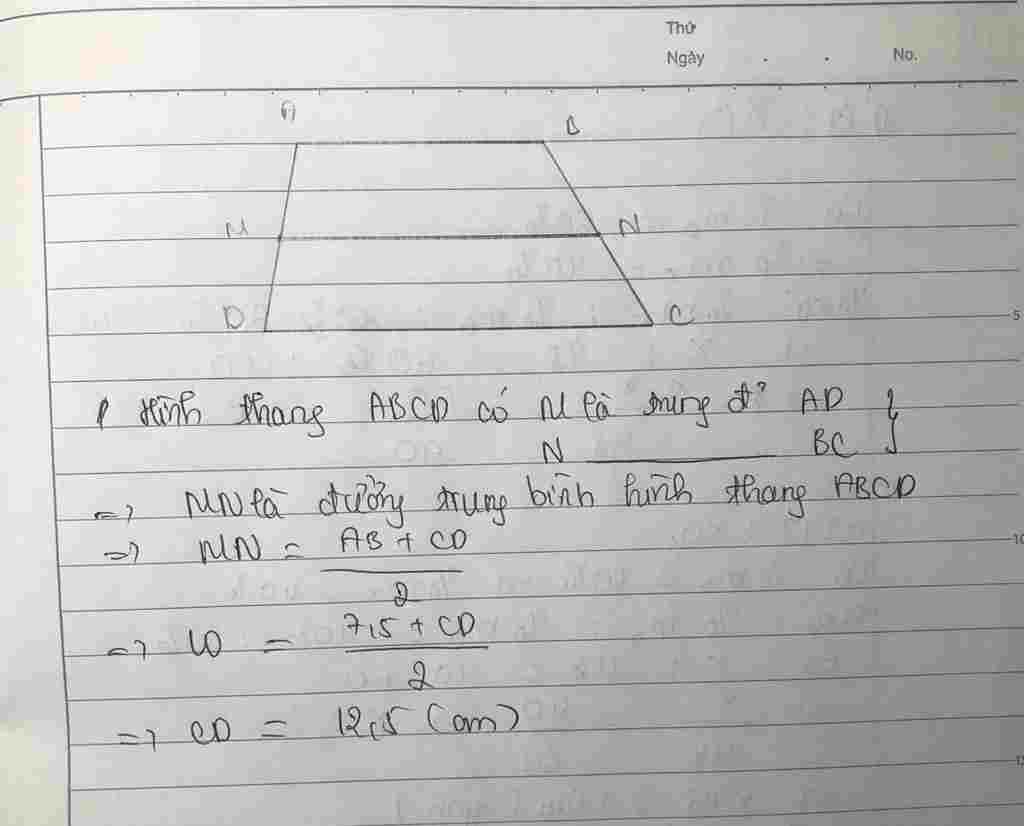 Thứ
Ngày . . No.
A B
M N
D C
5
Hình thang ABCD có M là trung đ? AD }
N ———— BC
=> MN là đường trung bình hình thang ABCD
=> MN = AB + CD
2
10
=> 10 = 7,5 + CD
2
=> CD = 12,5 (cm)